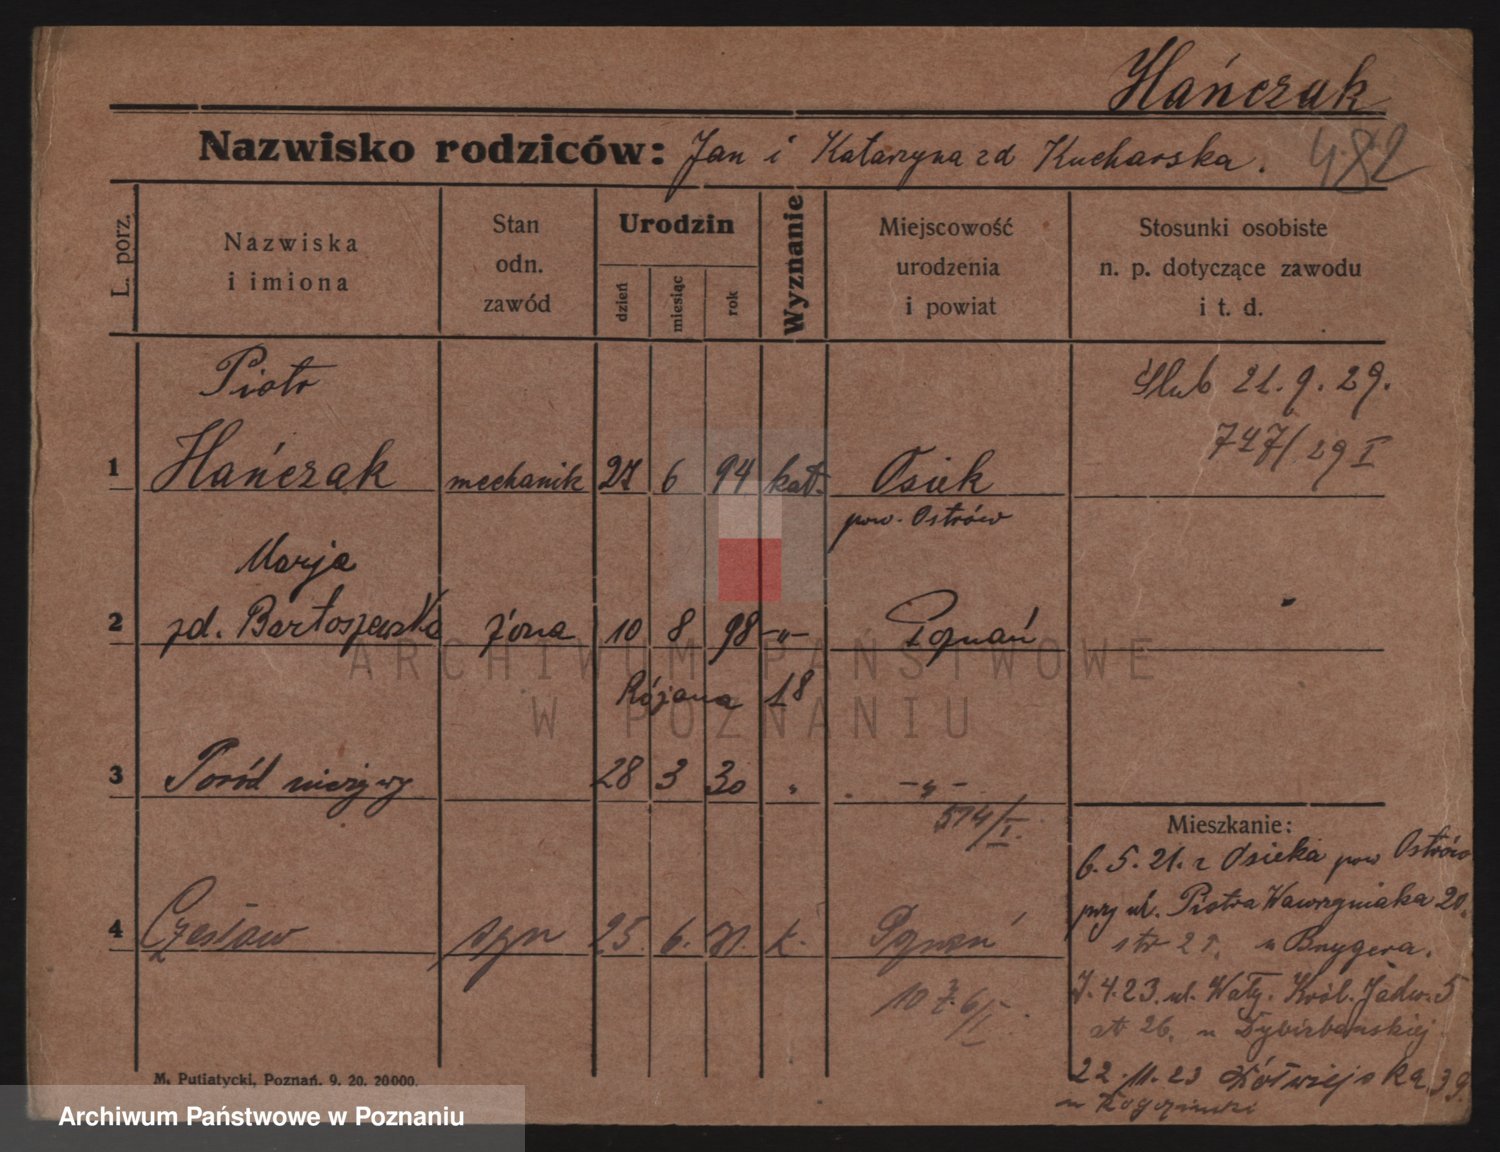 Hańczak
Nazwisko rodziców: Jan i Katarzyna zd Kucharska. 482
L. porz.
Nazwiska i imiona
Stan odn. zawód
Urodzin
dzień miesiąc rok
Wyznanie
Miejscowość urodzenia i powiat
Stosunki osobiste n. p. dotyczące zawodu i t. d.
Piotr
Ślub 21.9.29.
747/29 I
1 Hańczak mechanik 27 6 94 kat. Osiek
pow. Ostrów
Marja
2 zd. Bartoszewska żona 10 8 98 -"- Poznań
Różana 18
3 Poród nieżywy 28 3 30 " -"-
514/I.
Mieszkanie:
6.5.21. z Osieka pow Ostrów
przy ul. Piotra Wawrzyniaka 20.
4 Czesław syn 25. 6. 31. k. Poznań
u Brygera.
7.4.23. ul. Wały. Król. Jadw. 5
26. u
22.11.23 Półwiejska 39
M. Putiatycki, Poznań. 9. 20. 20000.
ARCHIWUM PAŃSTWOWE
W POZNANIU
Archiwum Państwowe w Poznaniu